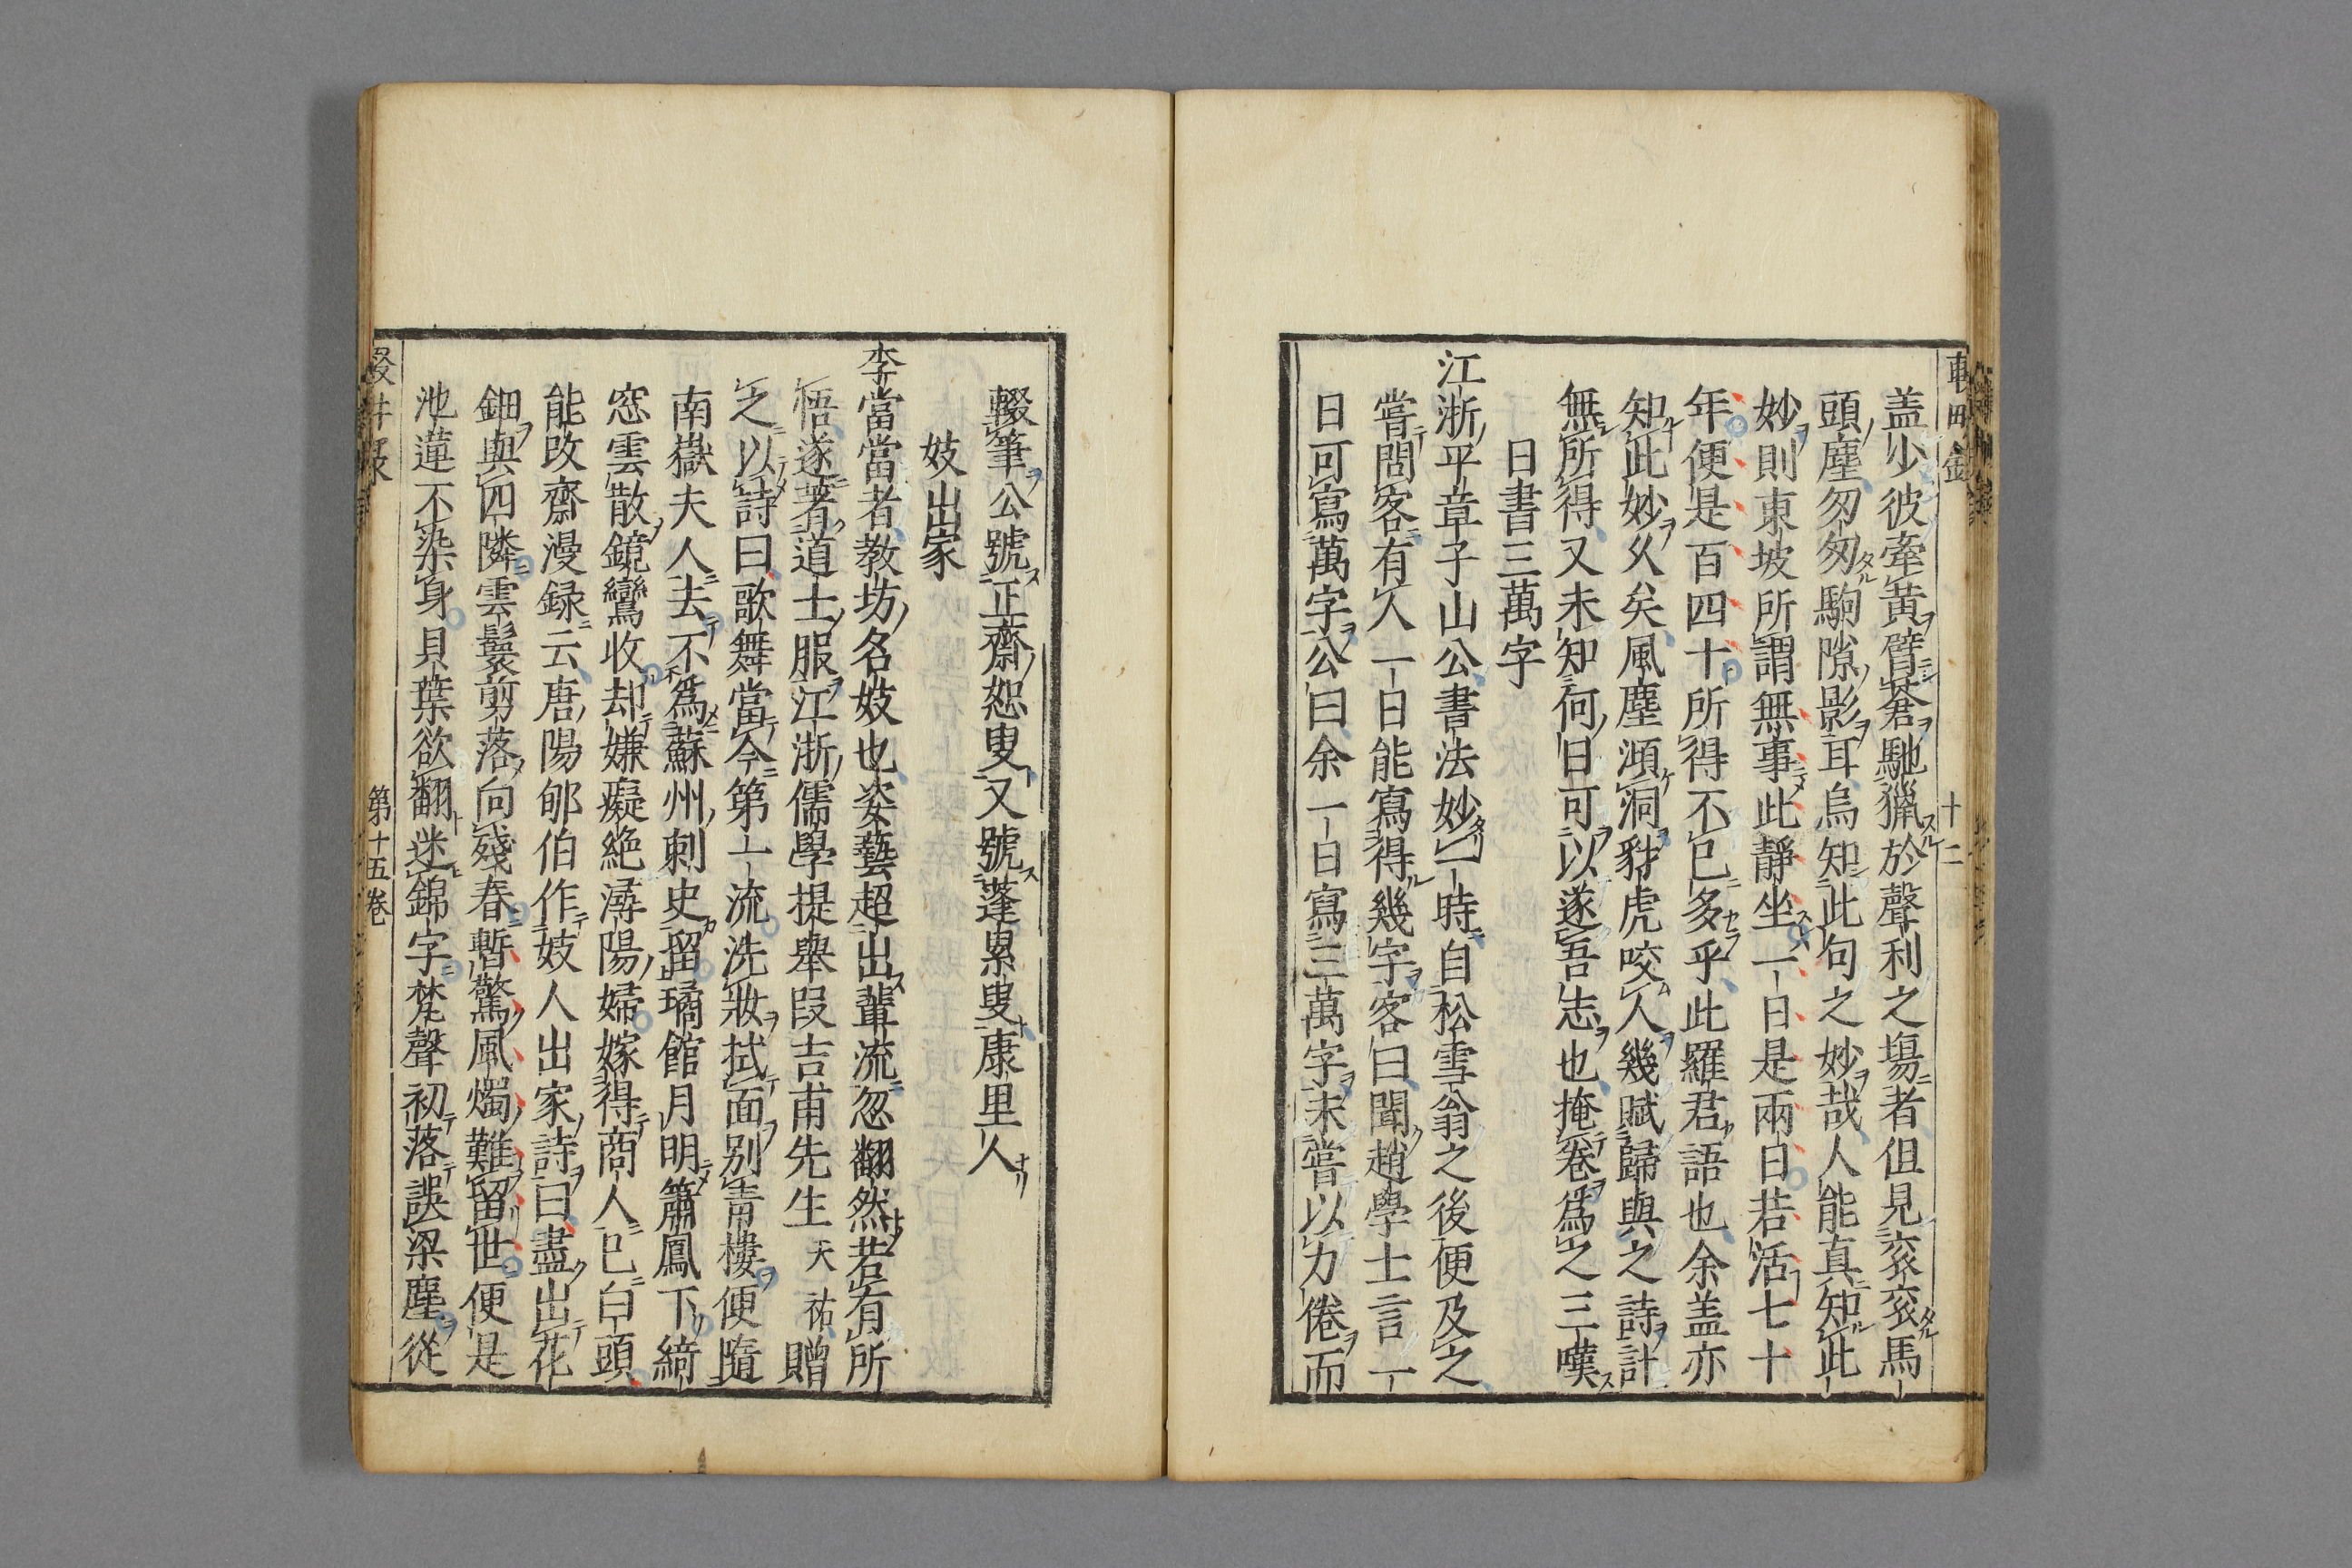 盖少彼牽黃臂蒼馳獵於聲利之場者但見衮衮馬
頭塵匆匆駒隙影耳烏知此句之妙哉人能真知此
妙則東坡所謂無事此靜坐一日是兩日若活七十
年便是百四十所得不已多乎此羅君語也余盖亦
知此妙久矣風塵澒洞豺虎咬人幾賦歸與之詩計
無所得又未知何日可以遂吾志也掩卷爲之三嘆
日書三萬字
江浙平章子山公書法妙一時自松雪翁之後便及之
嘗問客有人一日能寫得幾字客曰聞趙學士言一
日可寫萬字公曰余一日寫三萬字未嘗以力倦而
十二
輟筆公號正齋恕叟又號蓬累叟康里人
妓出家
李當當者教坊名妓也姿藝超出輩流忽翻然若有所
悟遂著道士服江浙儒學提舉段吉甫先生天祐贈
之以詩曰歌舞當今第一流洗妝拭面别青樓便隨
南嶽夫人去不爲蘇州刺史留璚館月明簫鳳下綺
窓雲散鏡鸞收却嫌癡絶潯陽婦嫁得商人已白頭
能改齋漫録云唐陽郇伯作妓人出家詩曰盡出花
鈿與四隣雲鬟剪落向殘春暫驚風燭難留世便是
池蓮不染身貝葉欲翻迷錦字梵聲初落誤梁塵從
第十五卷